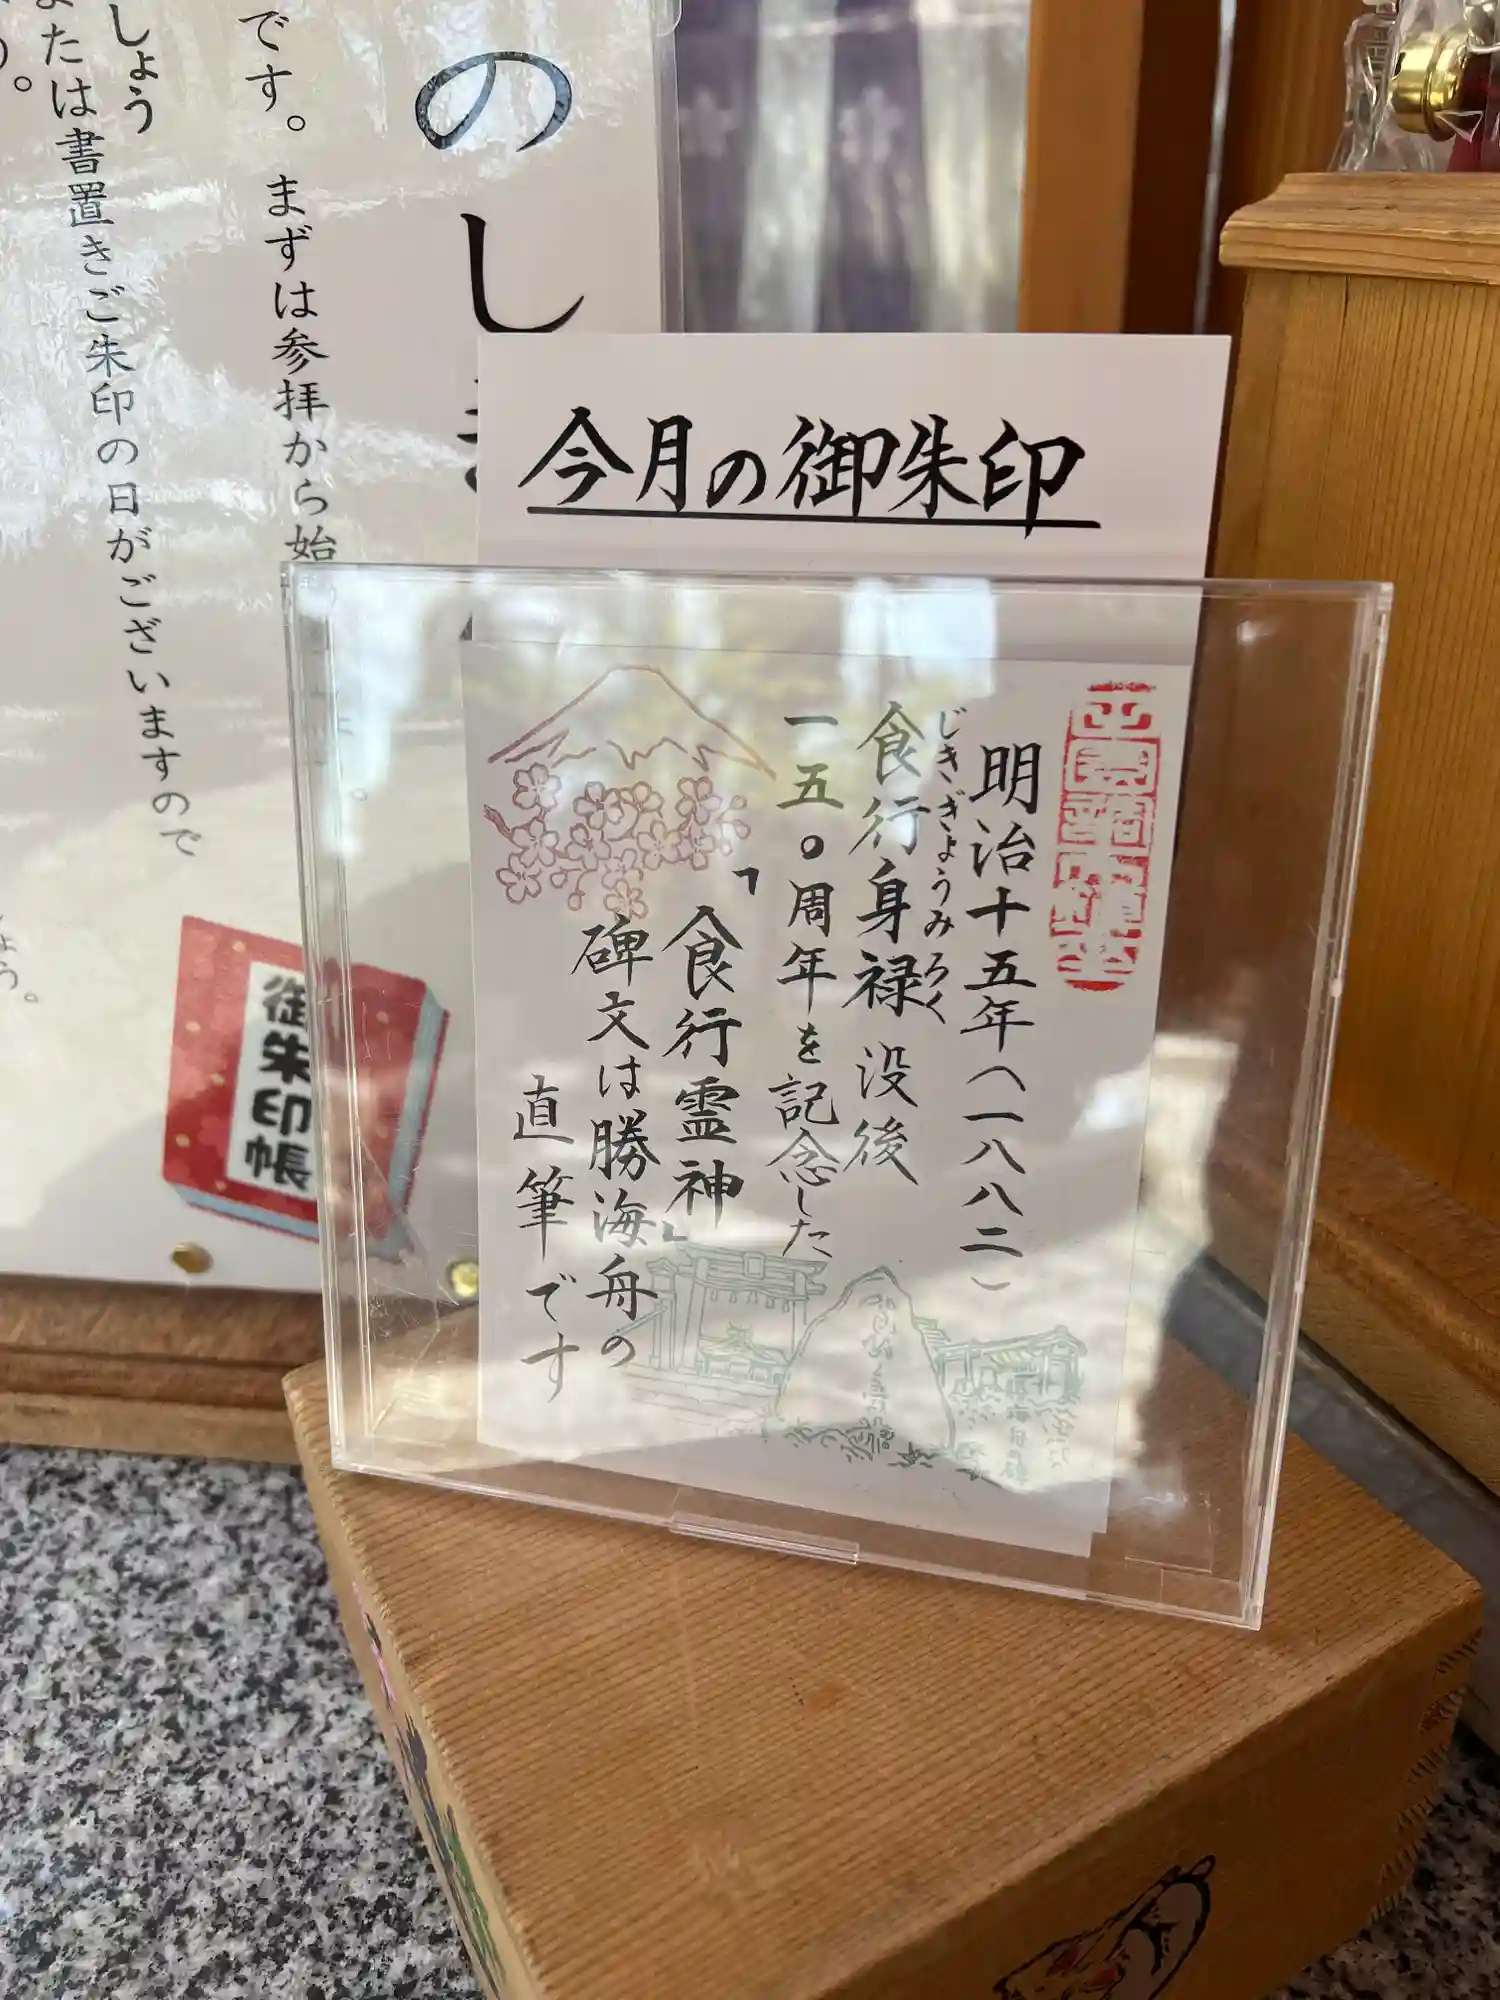 のし
です。まずは参拝から始
しょう
たは書置きご朱印の日がございますので
御朱印帳
今月の御朱印
明治十五年(一八八二)
じきぎょうみろく
食行身禄没後
一五〇周年を記念した
「食行霊神」
碑文は勝海舟の
直筆です